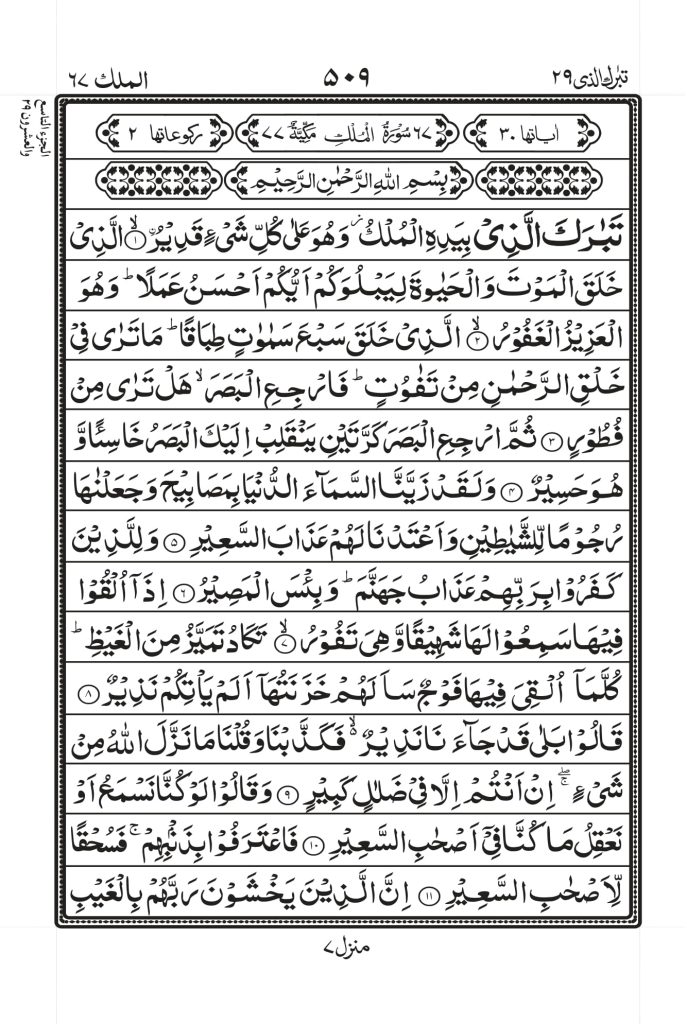 تبٰرك الذی ۲۹
۵۰۹
الملك ۶۷
الجزء التاسع والعشرون ۲۹
اٰیاتها ۳۰
۶۷ سُوۡرَةُ الۡمُلۡكِ مَكِّیَّةٌ ۷۷
ركوعاتها ۲
بِسۡمِ اللهِ الرَّحۡمٰنِ الرَّحِیۡمِ
تَبٰرَكَ الَّذِیۡ بِیَدِهِ الۡمُلۡكُ ز وَهُوَ عَلٰی كُلِّ شَیۡءٍ قَدِیۡرُ ۙ﴿۱﴾ اۨلَّذِیۡ
خَلَقَ الۡمَوۡتَ وَالۡحَیٰوةَ لِیَبۡلُوَكُمۡ اَیُّكُمۡ اَحۡسَنُ عَمَلًا ؕ وَهُوَ
الۡعَزِیۡزُ الۡغَفُوۡرُ ۙ﴿۲﴾ الَّذِیۡ خَلَقَ سَبۡعَ سَمٰوٰتٍ طِبَاقًا ؕ مَا تَرٰی فِیۡ
خَلۡقِ الرَّحۡمٰنِ مِنۡ تَفٰوُتٍ ؕ فَارۡجِعِ الۡبَصَرَ ۙ هَلۡ تَرٰی مِنۡ
فُطُوۡرٍ ﴿۳﴾ ثُمَّ ارۡجِعِ الۡبَصَرَ كَرَّتَیۡنِ یَنۡقَلِبۡ اِلَیۡكَ الۡبَصَرُ خَاسِئًا وَّ
هُوَ حَسِیۡرٌ ﴿۴﴾ وَلَقَدۡ زَیَّنَّا السَّمَآءَ الدُّنۡیَا بِمَصَابِیۡحَ وَجَعَلۡنٰهَا
رُجُوۡمًا لِّلشَّیٰطِیۡنِ وَاَعۡتَدۡنَا لَهُمۡ عَذَابَ السَّعِیۡرِ ﴿۵﴾ وَلِلَّذِیۡنَ
كَفَرُوۡا بِرَبِّهِمۡ عَذَابُ جَهَنَّمَ ؕ وَبِئۡسَ الۡمَصِیۡرُ ﴿۶﴾ اِذَاۤ اُلۡقُوۡا
فِیۡهَا سَمِعُوۡا لَهَا شَهِیۡقًا وَّهِیَ تَفُوۡرُ ۙ﴿۷﴾ تَكَادُ تَمَیَّزُ مِنَ الۡغَیۡظِ ؕ
كُلَّمَاۤ اُلۡقِیَ فِیۡهَا فَوۡجٌ سَاَلَهُمۡ خَزَنَتُهَاۤ اَلَمۡ یَاۡتِكُمۡ نَذِیۡرٌ ﴿۸﴾
قَالُوۡا بَلٰی قَدۡ جَآءَنَا نَذِیۡرٌ ۬ۙ فَكَذَّبۡنَا وَقُلۡنَا مَا نَزَّلَ اللهُ مِنۡ
شَیۡءٍ ۖۚ اِنۡ اَنۡتُمۡ اِلَّا فِیۡ ضَلٰلٍ كَبِیۡرٍ ﴿۹﴾ وَقَالُوۡا لَوۡ كُنَّا نَسۡمَعُ اَوۡ
نَعۡقِلُ مَا كُنَّا فِیۡۤ اَصۡحٰبِ السَّعِیۡرِ ﴿۱۰﴾ فَاعۡتَرَفُوۡا بِذَنۡۢبِهِمۡ ۚ فَسُحۡقًا
لِّاَصۡحٰبِ السَّعِیۡرِ ﴿۱۱﴾ اِنَّ الَّذِیۡنَ یَخۡشَوۡنَ رَبَّهُمۡ بِالۡغَیۡبِ
منزل ۷